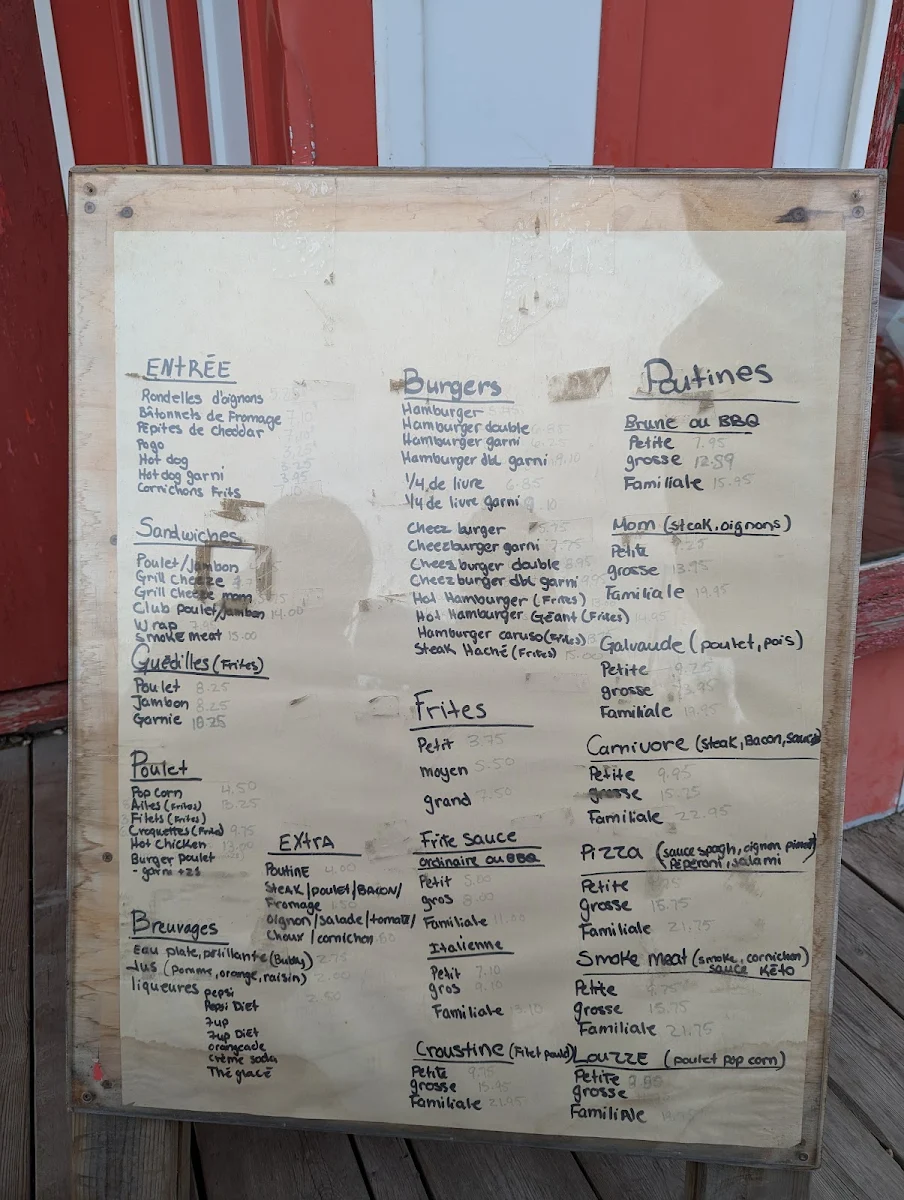 ENTRÉE
Rondelles d'oignons
Bâtonnets de Fromage
Pépites de cheddar
Pogo
Hot dog
Hot dog garni
Cornichons Frits
Sandwiches
Poulet/Jambon
Grill cheeze
Grill cheeze mom
Club poulet/jambon 14.00
Wrap
Smoke meat 15.00
Guédilles (Frites)
Poulet 8.25
Jambon 8.25
Garnie 10.25
Poulet
Pop corn 4.50
Ailes (Frites) 13.25
Filets (Frites)
Croquettes (Frite) 9.75
Hot chicken 13.00
Burger poulet
- garni +2$
Breuvages
Eau plate, pétillante (Bubly) 2.75
Jus (pomme, orange, raisin) 2.00
liqueures pepsi 2.50
Pepsi Diet
7up
7up Diet
orangeade
Crème soda
Thé glacé
EXtrA
Poutine
Steak/poulet/Bacon/
Fromage
oignon/salade/tomate/
Choux/cornichon
Burgers
Hamburger
Hamburger double
Hamburger garni
Hamburger dbl garni
1/4 de livre 6.85
1/4 de livre garni
Cheez burger
Cheezburger garni
Cheezburger double
Cheezburger dbl garni
Hot Hamburger (Frites)
Hot Hamburger Géant (Frites)
Hamburger caruso (Frites)
Steak Haché (Frites)
Frites
Petit 3.75
moyen 5.50
grand 7.50
Frite sauce
ordinaire ou BBQ
Petit
gros
Familiale 11.00
Italienne
Petit 7.10
gros 9.10
Familiale
Croustine (Filet poulet)
Petite 9.75
grosse 15.95
Familiale 21.95
Poutines
Brune ou BBQ
Petite 7.95
grosse 12.89
Familiale 15.95
Mom (steak, oignons)
Petite
grosse 13.95
Familiale 19.95
Galvaude (poulet, pois)
Petite 9.25
grosse 13.95
Familiale 19.95
Carnivore (steak, Bacon, Sauce)
Petite 9.95
grosse 15.25
Familiale 22.95
Pizza (sauce spagh, oignon piment
Péperoni, salami
Petite
grosse 15.75
Familiale 21.75
Smoke meat (smoke, cornichon)
sauce KÉto
Petite
grosse 15.75
Familiale 21.75
LouZZE (poulet pop corn)
Petite
grosse
Familiale